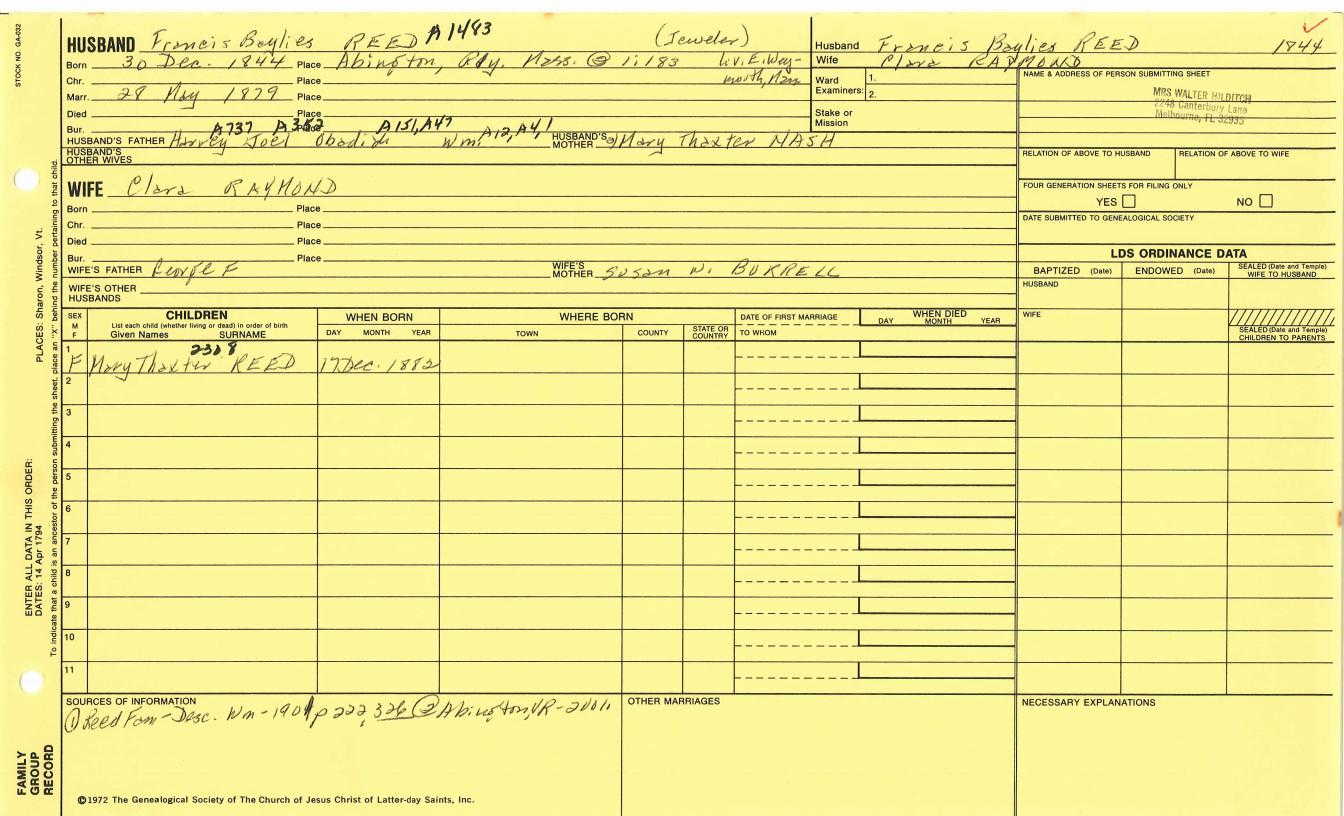 STOCK NO. GA-032
HUSBAND Francis Baylies REED A1483 (Jeweler)
Born 30 Dec. 1844 Place Abington, Ply. Mass. ② 1:183 liv. E. Wey-
mouth, Mass
Chr. Place
Marr. 28 May 1879 Place
Died Place
Bur. Place
A737 A352 A151, A47 A12, A4, 1
HUSBAND'S FATHER Harvey Joel Obadiah Wm. HUSBAND'S MOTHER ② Mary Thaxter NASH
HUSBAND'S OTHER WIVES
WIFE Clara RAYMOND
Born Place
Chr. Place
Died Place
Bur. Place
WIFE'S FATHER George F WIFE'S MOTHER Susan N. BURRELL
WIFE'S OTHER HUSBANDS
Husband Francis Baylies REED 1844
Wife Clara RAYMOND
Ward Examiners: 1.
2.
Stake or Mission
NAME & ADDRESS OF PERSON SUBMITTING SHEET
MRS WALTER HILDITCH
2248 Canterbury Lane
Melbourne, FL 32935
RELATION OF ABOVE TO HUSBAND RELATION OF ABOVE TO WIFE
FOUR GENERATION SHEETS FOR FILING ONLY
YES NO
DATE SUBMITTED TO GENEALOGICAL SOCIETY
LDS ORDINANCE DATA
BAPTIZED (Date) ENDOWED (Date) SEALED (Date and Temple) WIFE TO HUSBAND
HUSBAND
WIFE
SEALED (Date and Temple) CHILDREN TO PARENTS
SEX M F CHILDREN WHEN BORN WHERE BORN DATE OF FIRST MARRIAGE WHEN DIED
List each child (whether living or dead) in order of birth DAY MONTH YEAR
Given Names SURNAME DAY MONTH YEAR TOWN COUNTY STATE OR COUNTRY TO WHOM
2308
1 F Mary Thaxter REED 17 Dec. 1882
2
3
4
5
6
7
8
9
10
11
SOURCES OF INFORMATION
① Reed Fam-Desc. Wm-1901 p 222, 326 ② Abington, VR-
OTHER MARRIAGES
NECESSARY EXPLANATIONS
©1972 The Genealogical Society of The Church of Jesus Christ of Latter-day Saints, Inc.
PLACES: Sharon, Windsor, Vt.
ENTER ALL DATA IN THIS ORDER:
DATES: 14 Apr 1794
To indicate that a child is an ancestor of the person submitting the sheet, place an "X" behind the number pertaining to that child.
FAMILY GROUP RECORD